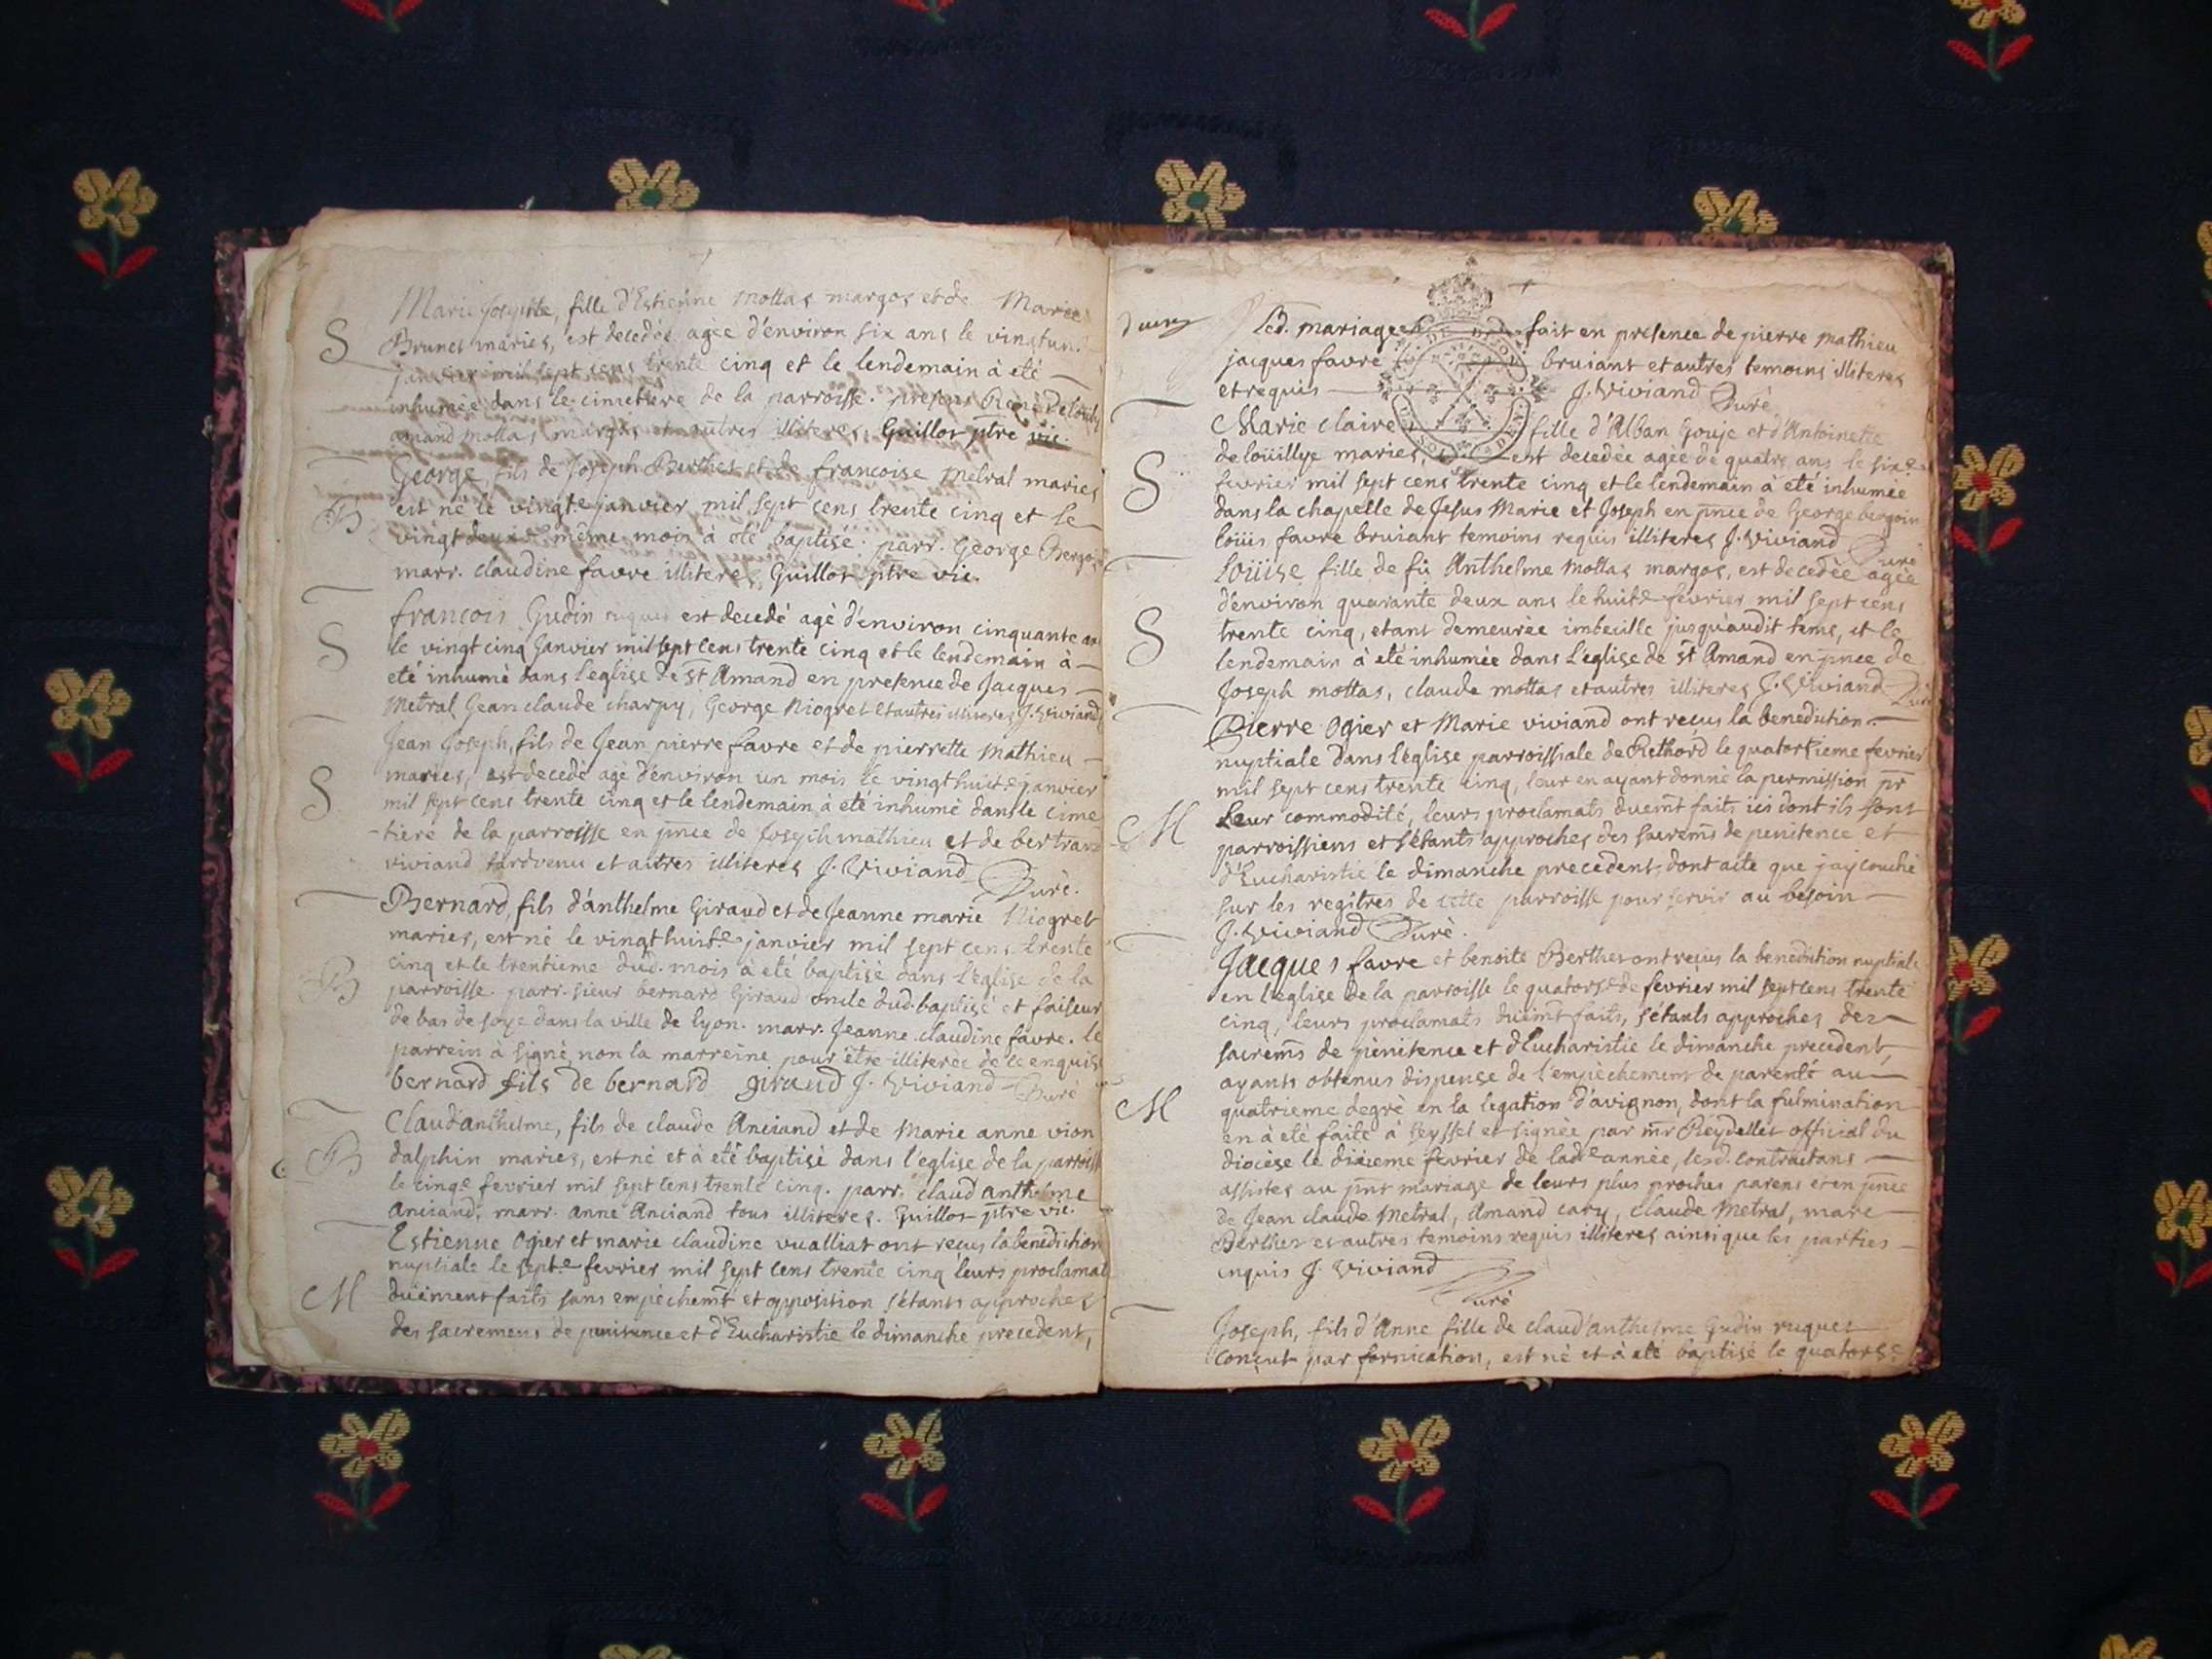 Marie Josephte, fille d'Estienne mottas margos et de Marie
S
Brunet mariés, est decedée agée d'environ six ans le vingtun.e
janvier mil sept cens trente cinq et le lendemain à eté
inhumée dans le cimetiere de la parroisse. presens
amand mottas margos et autres illiteres. Guillot ptre vic.
George, fils de Joseph Berthet et de francoise metral mariés
B
est né le vingt.e janvier mil sept cens trente cinq et le
vingt deux.e même mois à eté baptisé. parr. George
marr. claudine favre illiteres, Guillot ptre vic.
françois Gudin ruquet est decedé agé d'environ cinquante ans
S
le vingt cinq Janvier mil sept cens trente cinq et le lendemain à
eté inhumé dans l'eglise de st Amand en presence de Jacques
Metral Jean claude charpy, George Niogret et autres illiteres J. Viviand
Jean Joseph, fils de Jean pierre favre et de pierrette mathieu
S
mariés, est decedé agé d'environ un mois le vingt huit.e janvier
mil sept cens trente cinq et le lendemain à eté inhumé dans le cime
-tiere de la parroisse en pnce de Joseph mathieu et de bertrand
viviand tardvenu et autres illiteres J. Viviand Curé.
Bernard, fils d'anthelme Giraud et de Jeanne marie Niogret
mariés, est né le vingt huit.e janvier mil sept cens trente
B
cinq et le trentieme dud. mois à eté baptisé dans l'eglise de la
parroisse. parr. sieur bernard Giraud oncle dud. baptisé et faiseur
de bas de soye dans la ville de lyon. marr. Jeanne claudine favre. le
parrein à signé, non la marreine pour être illiterée de ce enquise
bernard fils de bernard giraud J. Viviand Curé
Claud'anthelme, fils de claude Anciand et de Marie anne vion
B
dalphin mariés, est né et à eté baptisé dans l'eglise de la parroisse
le cinq.e fevrier mil sept cens trente cinq. parr. claud'anthelme
Anciand, marr. anne Anciand tous illiteres. Guillot ptre vic.
Estienne Ogier et marie claudine vualliat ont reçus la benediction
nuptiale le sept.e fevrier mil sept cens trente cinq leurs proclamats
M
düement faits sans empêchemt et opposition s'étants approchés
des sacremens de penitence et d'Eucharistie le dimanche precedent,
Led. mariage fait en presence de pierre mathieu
jacques favre bruiant et autres temoins illiteres
et requis J. Viviand Curé
Marie claire fille d'Alban Gouje et d'Antoinette
S
de loüillye mariés, est decedée agée de quatre ans le six.e
fevrier mil sept cens trente cinq et le lendemain à eté inhumée
dans la chapelle de Jesus Marie et Joseph en pnce de George bergoin
loüis favre bruiant temoins requis illiteres J. Viviand Curé
Loüise fille de fû Anthelme mottas margos, est decedée agée
d'environ quarante deux ans le huit.e fevrier mil sept cens
S
trente cinq, etant demeurée imbecille jusqu'audit tems, et le
lendemain à eté inhumée dans l'eglise de st Amand en pnce de
Joseph mottas, claude mottas et autres illiteres J. Viviand Curé
Pierre Ogier et Marie viviand ont reçus la benediction
nuptiale dans l'eglise parroissiale de Rethord le quatorsieme fevrier
mil sept cens trente cinq, leur en ayant donné la permission pr
M
Leur commodité, leurs proclamats duemt faits ici dont ils sont
parroissiens et s'étants approchés des sacremts de penitence et
d'Eucharistie le dimanche precedent, dont acte que j'ay couché
sur les regitres de cette parroisse pour servir au besoin
J. Viviand Curé.
Jacques favre et benoite Berthet ont reçus la benediction nuptiale
en l'eglise de la parroisse le quators.e de fevrier mil sept cens trente
cinq, leurs proclamats duemt faits, s'étants approchés des
sacremts de pénitence et d'Eucharistie le dimanche precedent,
ayants obtenus dispense de l'empêchement de parenté au
M
quatrieme degré en la legation d'avignon, dont la fulmination
en à eté faite à Seyssel et signée par mr Reydellet official du
diocèse le dixieme fevrier de lad.e année, lesd. contractans
assistés au pnt mariage de leurs plus proches parens et en pnce
de Jean claude Metral, Amand cary, claude Metral, marc
Berthet et autres temoins requis illiteres ainsi que les parties
enquis J. Viviand
Curé
Joseph, fils d'Anne fille de claud'anthelme Gudin ruquet
conçut par fornication, est né et à eté baptisé le quators.e